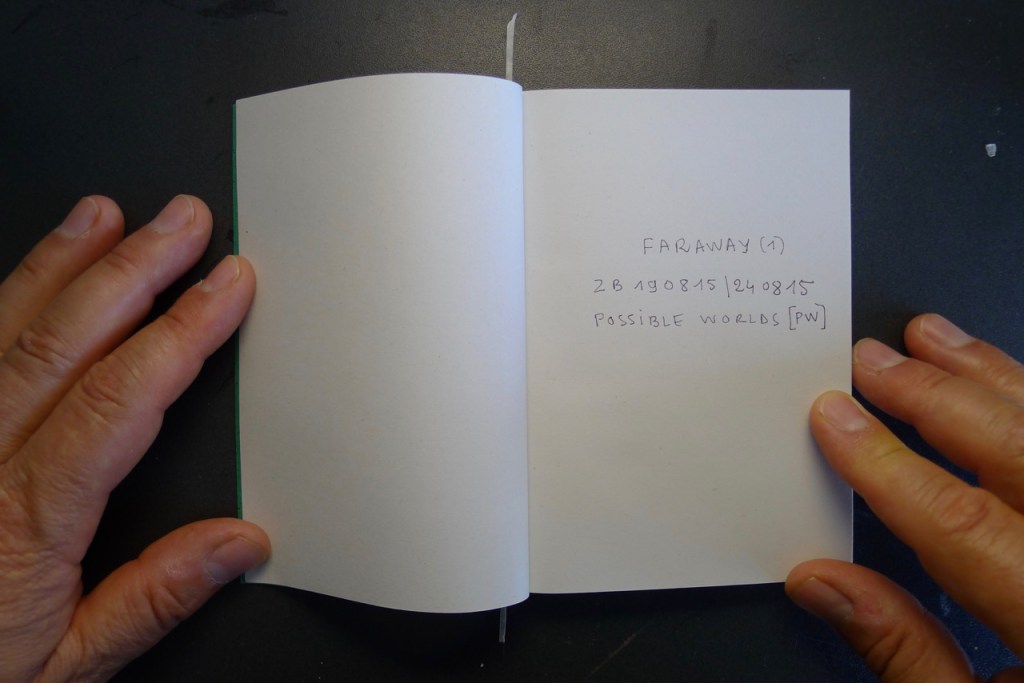 FARAWAY (1)
ZB 190815 | 240815
POSSIBLE WORLDS [PW]